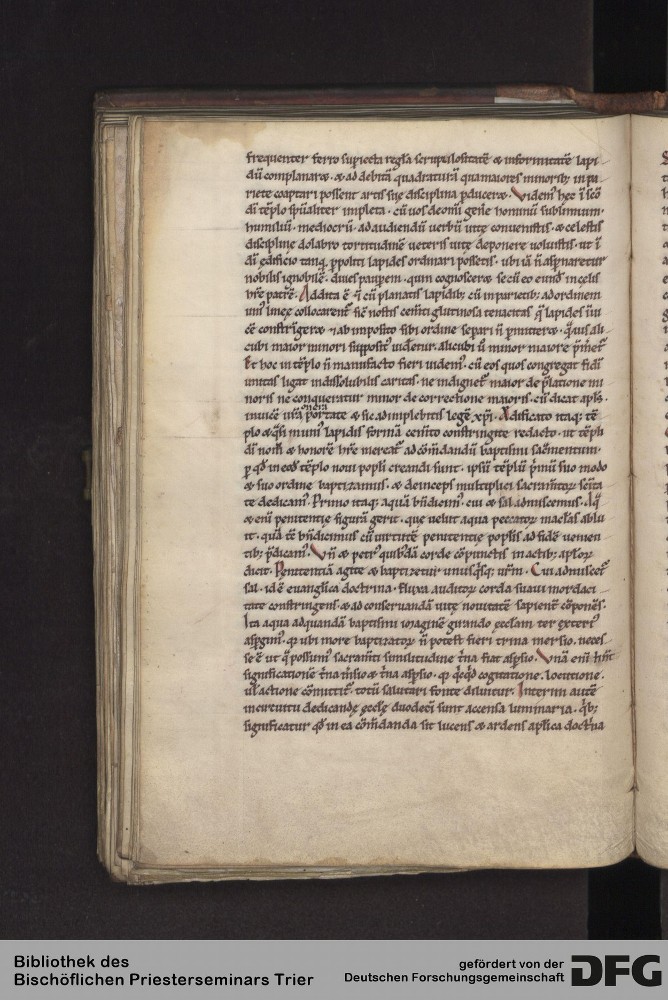 frequenter ferro supiecta regla scrupulositatē & informitatē lapi
dū complanare. & ad debitā quadraturā qua maiores minorib; in pa
riete coaptari possent artis sue disciplina pducere. Videm' hec ī scō
di tēplo spūaliter impleta. cū uos de omi gen̄e hominū sublimium.
humiliū. mediocrū. ad audiendū uerbū uite conuenistis. & celestis
discipline dolabro tortitudinē ueteris uite deponere uoluistis. ut ī
di edificio tanq̄ ppoliti lapides ordinari possetis. ubi iā n̄ aspnaretur
nobilis ignobilē. diues paupem. quin cognoscere se cū eo eund' in celis
habere patrē. Addita ē cū planatis lapidib; cū in parietib; ad ordinem
uni' linee collocarent' sic nostis cemti glutinosa tenacitas q̄ lapides
cē constringere & ab imposito sibi ordine separi n̄ pmittere. q̄uis ali
cubi maior minori supposit' uidetur. alicubi ū minor maiore p̄met
Et hoc in tēplo n̄ manufacto fieri uidem'. cū eos quos congregat fidi
unitas ligat indissolubilis caritas. ne indignet' maior de platione mi
noris ne conqueratur minor de correctione maioris. cū dicat apls.
inuicē onera portate & sic adimplebitis legē xpi. Aedificato itaq; tē
plo & q̄si muni' lapidis formā cemto constringente redacto. ut tēpli
di nom̄ & honorē mereat' ad cōmdandū baptismi sacmentum.
p qd' in eod' tēplo noui popli creandi sunt. ipsū tēplū p̄mū suo modo
& suo ordine baptizamus. & deinceps multiplici sacramtor
te dedicam'. Primo itaq; aquā bn̄dicim'. cui & sal admiscemus. Aq̄
& enī penitentie figurā gerit. que uelut aqua peccator maclas ablu
it. quā tc̄ bn̄dicimus cū uirtutē penitentie poplis ad fidē uenien
tib; p̄dicam'. Vn̄ & petr' quib'dā corde cōpunctis in actib; aplor
dicit. Penitentiā agite & baptizetur unusq̄sq; ur̄m. Cui admiscet'
sal. id ē euanglica doctrina. Fluxa auditor corda suaui mordaci
tate constringens. & ad conseruandā uite nouitatē sapient' cōponēs.
Ita aqua ad quandā baptismi imaginē girando ecclam ter exteri'
aspgim'. qp ubi more baptizator n̄ potest fieri trina mersio. neces
se ē ut q̄ possum' sacramti similitudine t'na fiat aspsio. Vnā enī
significationē t'na m'sio & t'na aspsio. qp q̄cqd cogitatione. locutione.
ul' actione cōmittit'. totū salutari fonte diluitur. Interim autē
in circuitu dedicande eccle duodeci sunt accensa luminaria. q̄b;
significatur qd' in ea cōmdanda sit lucens & ardens aplica doct'na
Bibliothek des
Bischöflichen Priesterseminars Trier
gefördert von der
Deutschen Forschungsgemeinschaft
DFG